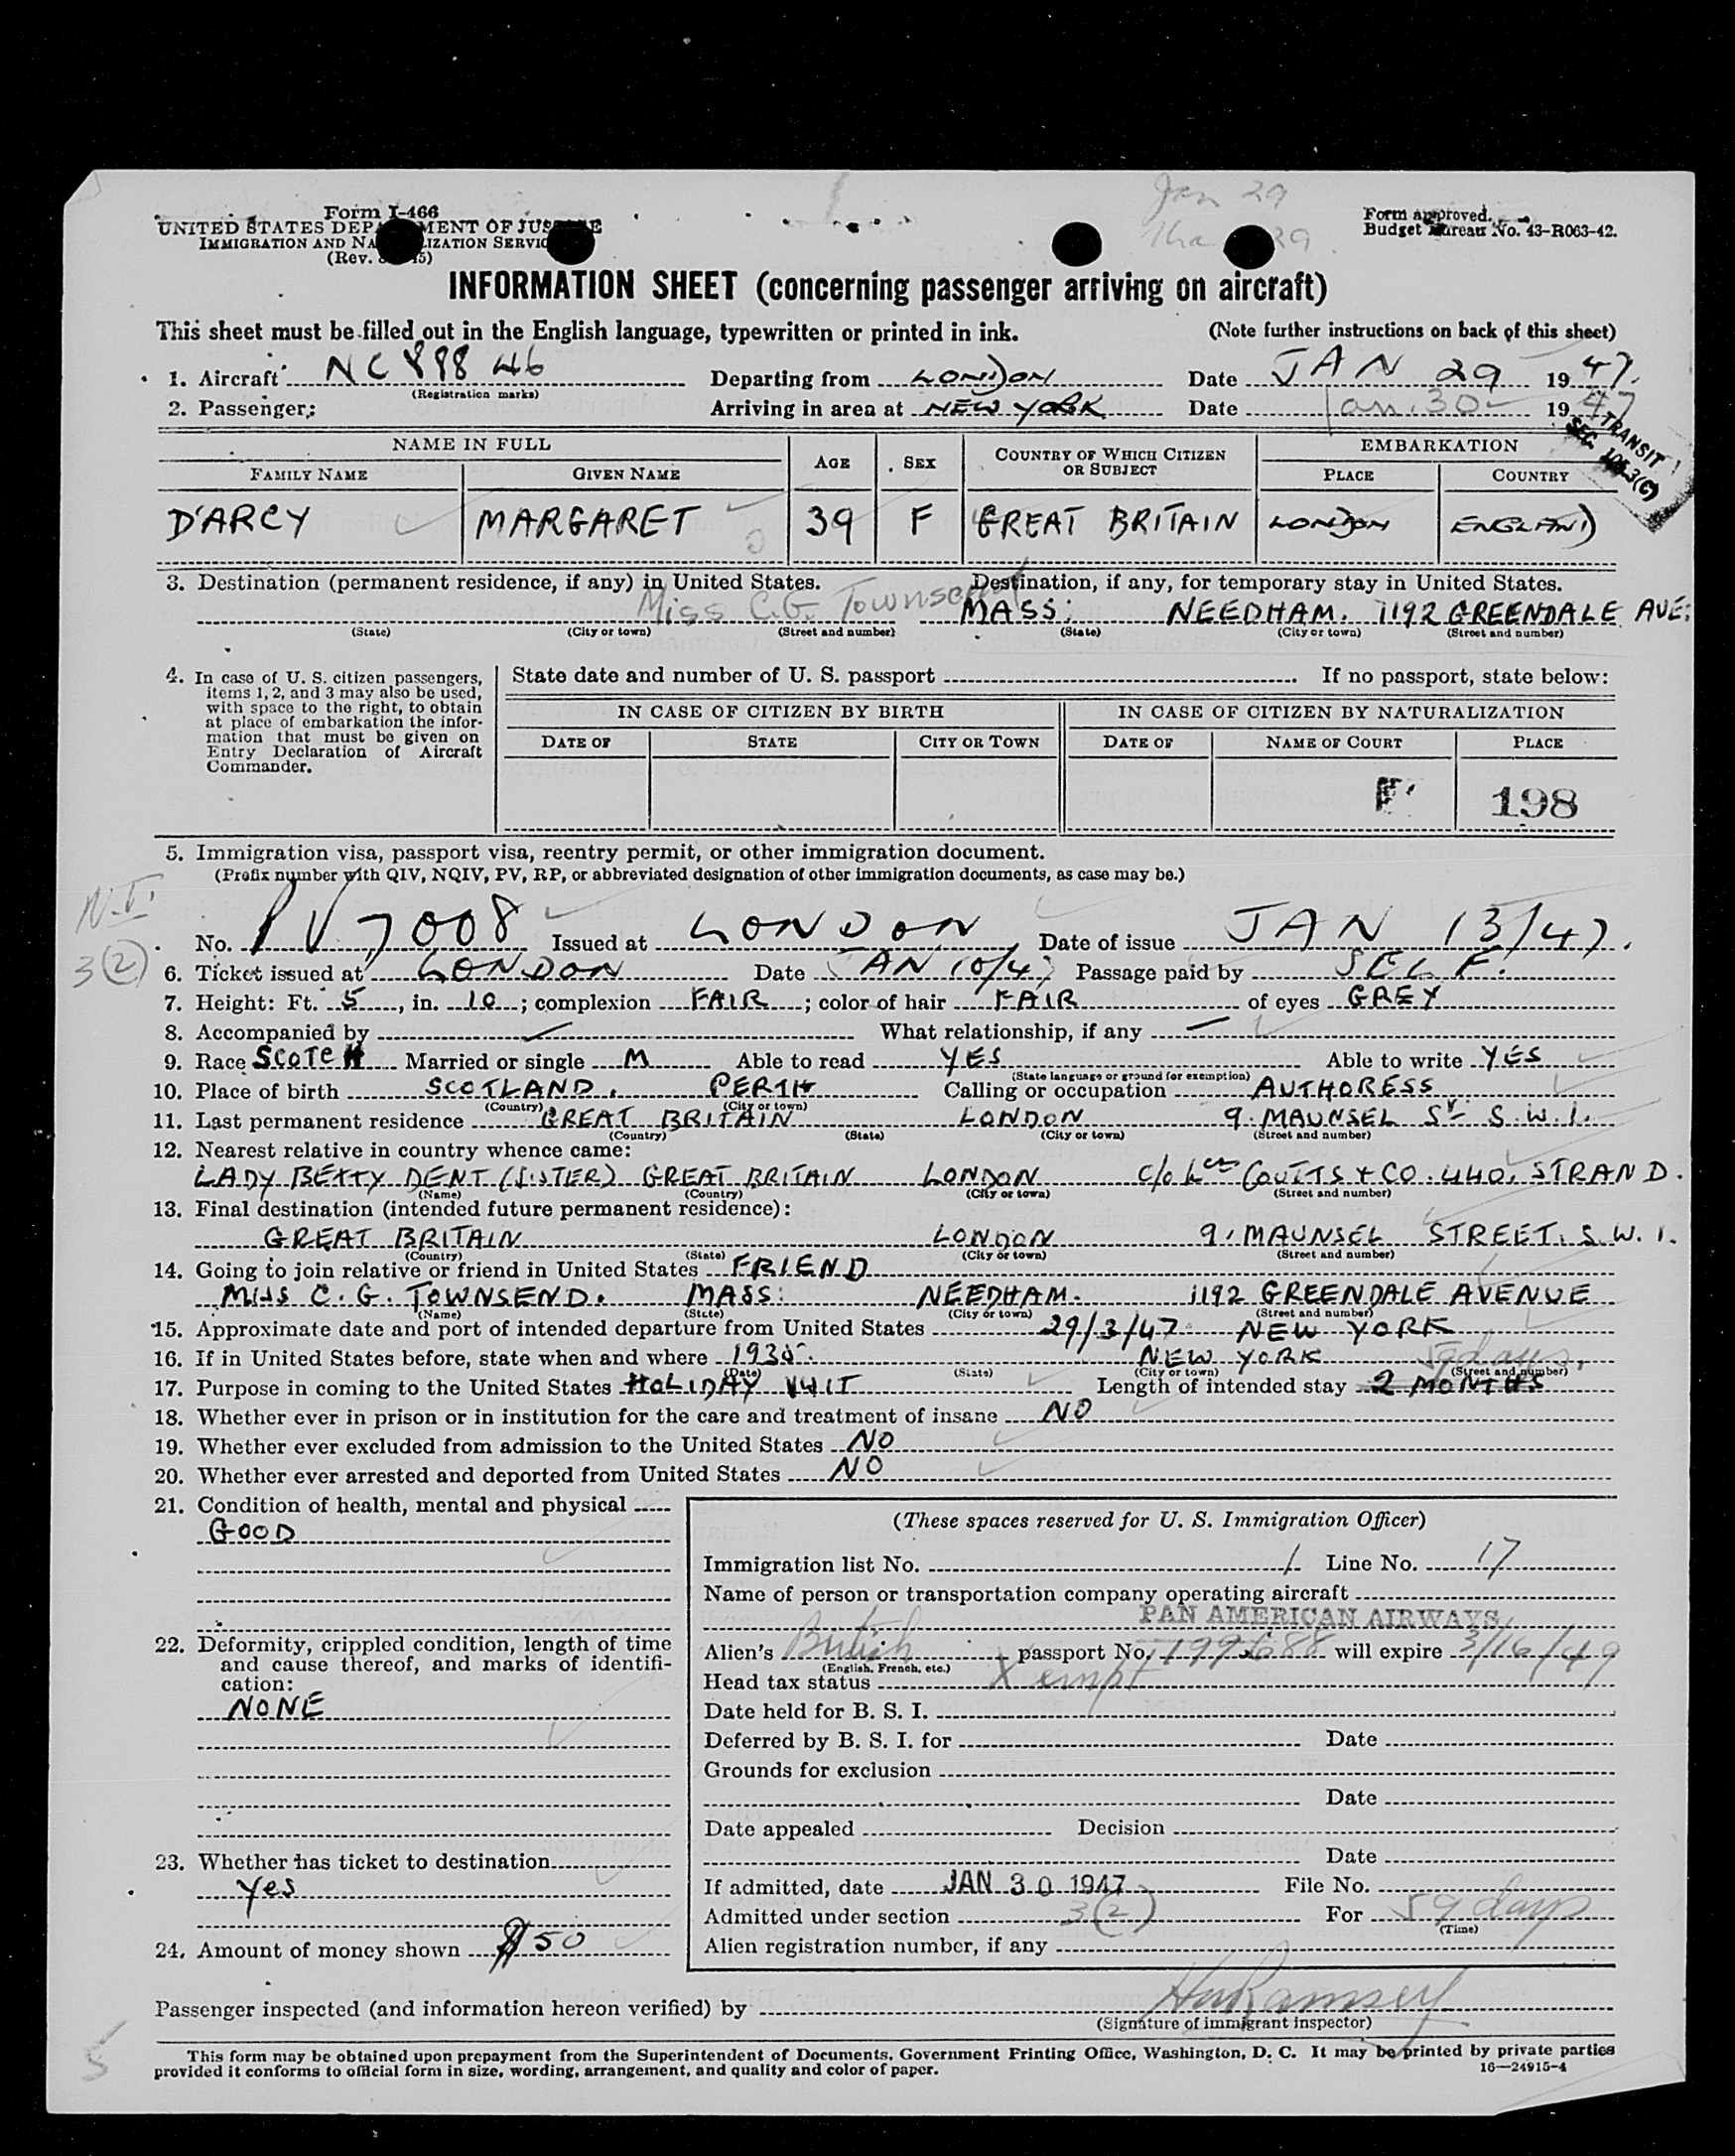 Jan 29
Form I-466
UNITED STATES DEPARTMENT OF JUSTICE
IMMIGRATION AND NATURALIZATION SERVICE
(Rev. 45)
Form approved.
Budget Bureau No. 43-R063-42.
INFORMATION SHEET (concerning passenger arriving on aircraft)
This sheet must be filled out in the English language, typewritten or printed in ink. (Note further instructions on back of this sheet)
1. Aircraft NC 88846 Departing from LONDON Date JAN 29 1947.
(Registration marks)
2. Passenger: Arriving in area at NEW YORK Date Jan. 30 1947
TRANSIT
SEC. 105-3(C)
NAME IN FULL AGE SEX COUNTRY OF WHICH CITIZEN OR SUBJECT EMBARKATION
FAMILY NAME GIVEN NAME PLACE COUNTRY
D'ARCY MARGARET 39 F GREAT BRITAIN LONDON ENGLAND
3. Destination (permanent residence, if any) in United States. Destination, if any, for temporary stay in United States.
Miss C.G. Townsend MASS: NEEDHAM. 1192 GREENDALE AVE:
(State) (City or town) (Street and number) (State) (City or town) (Street and number)
4. In case of U. S. citizen passengers,
items 1, 2, and 3 may also be used,
with space to the right, to obtain
at place of embarkation the infor-
mation that must be given on
Entry Declaration of Aircraft
Commander.
State date and number of U. S. passport If no passport, state below:
IN CASE OF CITIZEN BY BIRTH IN CASE OF CITIZEN BY NATURALIZATION
DATE OF STATE CITY OR TOWN DATE OF NAME OF COURT PLACE
F 198
5. Immigration visa, passport visa, reentry permit, or other immigration document.
(Prefix number with QIV, NQIV, PV, RP, or abbreviated designation of other immigration documents, as case may be.)
N.I.
3(2)
No. PV 7008 Issued at LONDON Date of issue JAN 13/47.
6. Ticket issued at LONDON Date JAN 10/47 Passage paid by SELF.
7. Height: Ft. 5, in. 10; complexion FAIR; color of hair FAIR of eyes GREY
8. Accompanied by — What relationship, if any —
9. Race SCOTCH Married or single M Able to read YES Able to write YES
(State language or ground for exemption)
10. Place of birth SCOTLAND. PERTH Calling or occupation AUTHORESS
(Country) (City or town)
11. Last permanent residence GREAT BRITAIN LONDON 9. MAUNSEL ST. S.W.1.
(Country) (State) (City or town) (Street and number)
12. Nearest relative in country whence came:
LADY BETTY DENT (SISTER) GREAT BRITAIN LONDON c/o COUTTS & CO. 440, STRAND.
(Name) (Country) (City or town) (Street and number)
13. Final destination (intended future permanent residence):
GREAT BRITAIN LONDON 9, MAUNSEL STREET. S.W.1.
(Country) (State) (City or town) (Street and number)
14. Going to join relative or friend in United States FRIEND
MISS C. G. TOWNSEND. MASS: NEEDHAM. 1192 GREENDALE AVENUE
(Name) (State) (City or town) (Street and number)
15. Approximate date and port of intended departure from United States 29/3/47 NEW YORK
16. If in United States before, state when and where 1930. NEW YORK 59 days,
(Date) (State) (City or town) (Street and number)
17. Purpose in coming to the United States HOLIDAY VISIT Length of intended stay 2 MONTHS
18. Whether ever in prison or in institution for the care and treatment of insane NO
19. Whether ever excluded from admission to the United States NO
20. Whether ever arrested and deported from United States NO
21. Condition of health, mental and physical
GOOD
22. Deformity, crippled condition, length of time
and cause thereof, and marks of identifi-
cation:
NONE
23. Whether has ticket to destination
Yes
24. Amount of money shown $50
(These spaces reserved for U. S. Immigration Officer)
Immigration list No. 1 Line No. 17
Name of person or transportation company operating aircraft
PAN AMERICAN AIRWAYS
Alien's British passport No. 199688 will expire 3/16/49
(English, French, etc.)
Head tax status Xempt
Date held for B. S. I.
Deferred by B. S. I. for Date
Grounds for exclusion
Date
Date appealed Decision
Date
If admitted, date JAN 30 1947 File No.
Admitted under section 3(2) For 59 days
(Time)
Alien registration number, if any
Passenger inspected (and information hereon verified) by
(Signature of immigrant inspector)
5
This form may be obtained upon prepayment from the Superintendent of Documents, Government Printing Office, Washington, D. C. It may be printed by private parties
provided it conforms to official form in size, wording, arrangement, and quality and color of paper. 16—24915-4